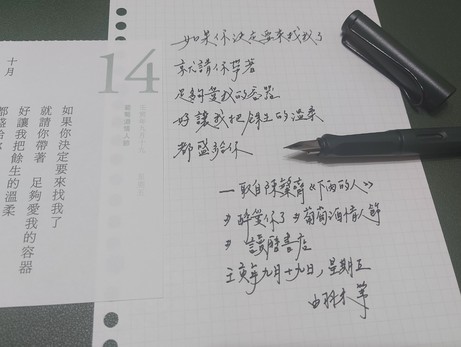 十月
14
葡萄酒情人節
如果你決定要來找我了
就請你帶著 足夠愛我的容器
好讓我把餘生的溫柔
都盛給
如果你決定要來找我了
就請你帶著
足夠愛我的容器
好讓我把餘生的溫柔
都盛給你
—取自陳繁齊《下雨的人》
》醉愛你了》葡萄酒情人節
》讀曆書店
壬寅年九月十九日,星期五